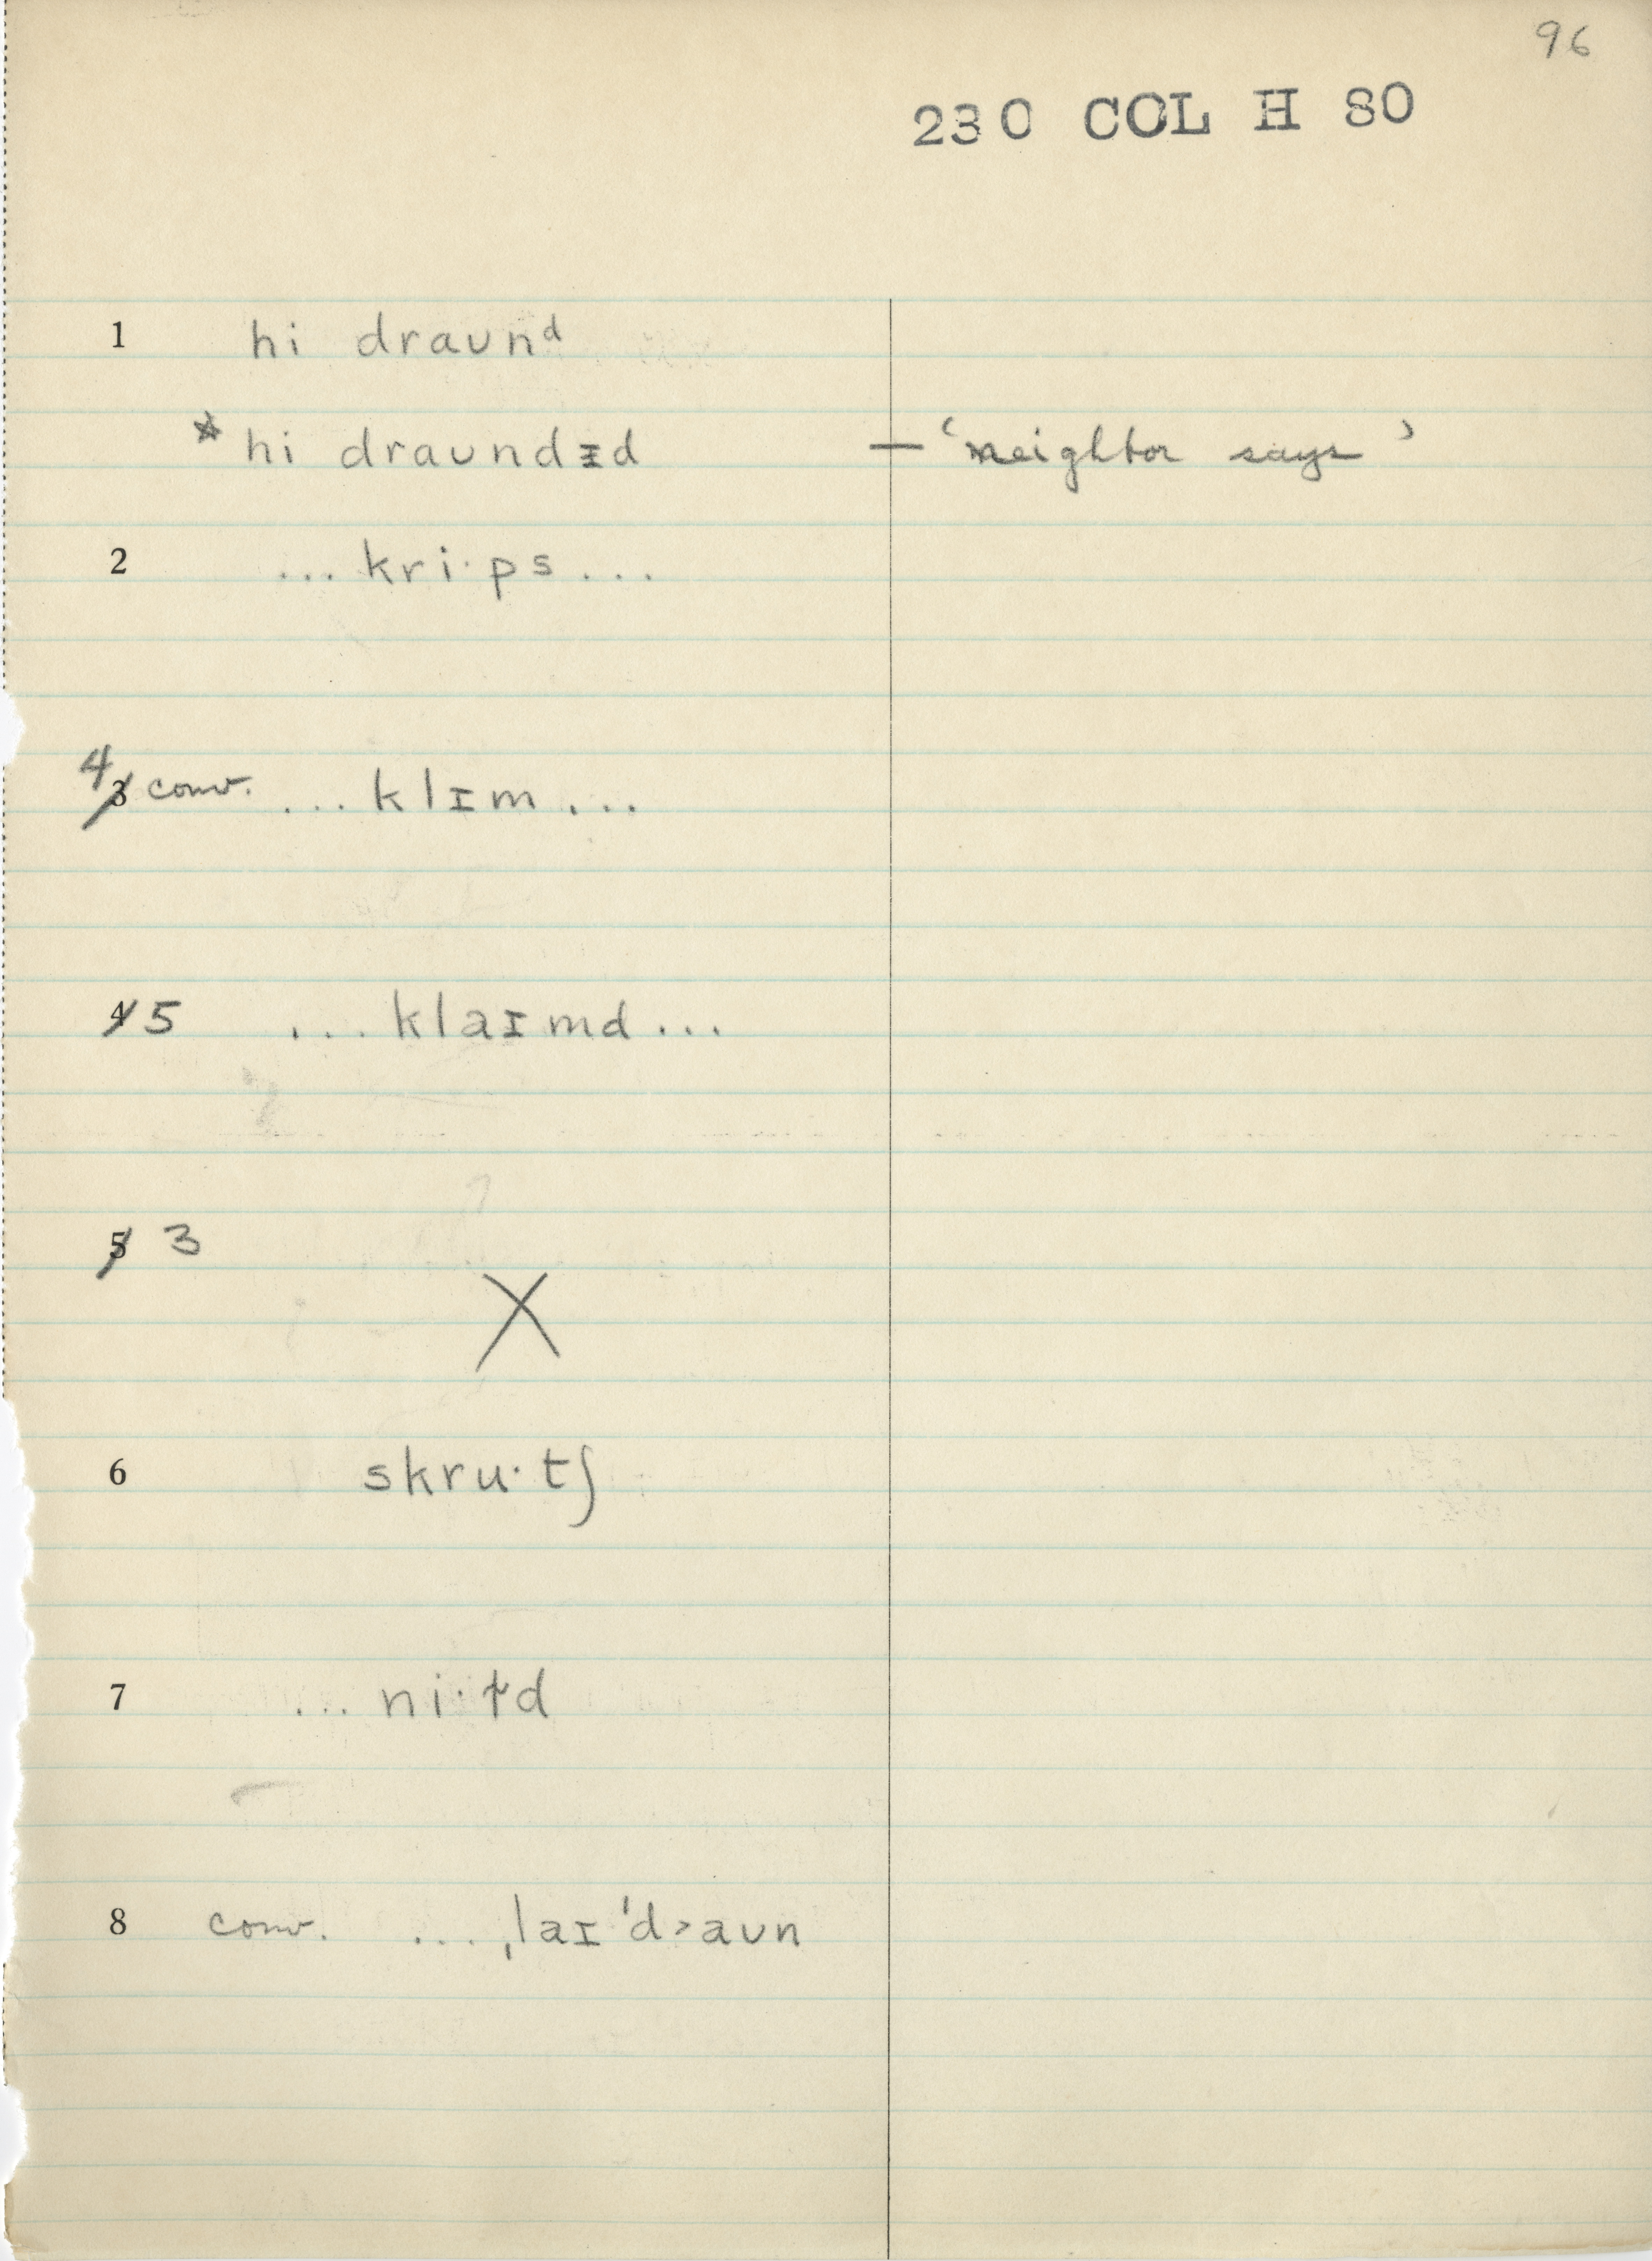 96
230 COL H 80
1 hi draʊnᵈ
* hi draʊndɪ̵d — ‘neighbor says’
2 ... kri·ps ...
4 3 conv. ... klɪm ...
4 5 ... klaɪmd ...
5 3
X
6 skru·tʃ
7 ... ni·ɫd
8 conv. ... ˌlaɪ ˈd˃aʊn